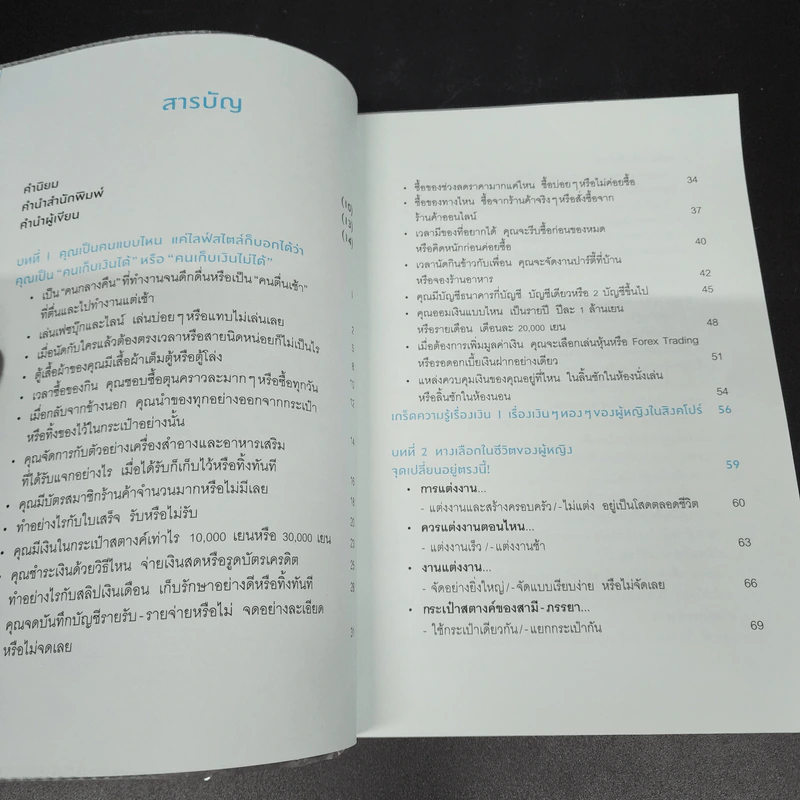 สารบัญ
คำนิยม (10)
คำนำสำนักพิมพ์ (13)
คำนำผู้เขียน (14)
บทที่ 1 คุณเป็นคนแบบไหน แค่ไลฟ์สไตล์ก็บอกได้ว่า
คุณเป็น "คนเก็บเงินได้" หรือ "คนเก็บเงินไม่ได้"
• เป็น "คนกลางคืน" ที่ทำงานจนดึกดื่นหรือเป็น "คนตื่นเช้า"
ที่ตื่นและไปทำงานแต่เช้า
• เล่นเฟซบุ๊กและไลน์ เล่นบ่อยๆ หรือแทบไม่เล่นเลย
• เมื่อนัดกับใครแล้วต้องตรงเวลาหรือสายนิดหน่อยก็ไม่เป็นไร
• ตู้เสื้อผ้าของคุณมีเสื้อผ้าเต็มตู้หรือตู้โล่ง
• เวลาซื้อของกิน คุณชอบซื้อตุนคราวละมากๆ หรือซื้อทุกวัน
• เมื่อกลับจากข้างนอก คุณนำของทุกอย่างออกจากกระเป๋า
หรือทิ้งของไว้ในกระเป๋าอย่างนั้น
• คุณจัดการกับตัวอย่างเครื่องสำอางและอาหารเสริม
ที่ได้รับแจกอย่างไร เมื่อได้รับก็เก็บไว้หรือทิ้งทันที 14
• คุณมีบัตรสมาชิกร้านค้าจำนวนมากหรือไม่มีเลย
• ทำอย่างไรกับใบเสร็จ รับหรือไม่รับ
• คุณมีเงินในกระเป๋าสตางค์เท่าไร 10,000 เยนหรือ 30,000 เยน
• คุณชำระเงินด้วยวิธีไหน จ่ายเงินสดหรือรูดบัตรเครดิต
ทำอย่างไรกับสลิปเงินเดือน เก็บรักษาอย่างดีหรือทิ้งทันที
คุณจดบันทึกบัญชีรายรับ-รายจ่ายหรือไม่ จดอย่างละเอียด
หรือไม่จดเลย
• ซื้อของช่วงลดราคามากแค่ไหน ซื้อบ่อยๆ หรือไม่ค่อยซื้อ 34
• ซื้อของทางไหน ซื้อจากร้านค้าจริงๆ หรือสั่งซื้อจาก
ร้านค้าออนไลน์ 37
• เวลามีของที่อยากได้ คุณจะรีบซื้อก่อนของหมด
หรือคิดหนักก่อนค่อยซื้อ 40
• เวลานัดกินข้าวกับเพื่อน คุณจะจัดงานปาร์ตี้ที่บ้าน
หรือจองร้านอาหาร 42
• คุณมีบัญชีธนาคารกี่บัญชี บัญชีเดียวหรือ 2 บัญชีขึ้นไป 45
• คุณออมเงินแบบไหน เป็นรายปี ปีละ 1 ล้านเยน
หรือรายเดือน เดือนละ 20,000 เยน 48
• เมื่อต้องการเพิ่มมูลค่าเงิน คุณจะเลือกเล่นหุ้นหรือ Forex Trading
หรือรอดอกเบี้ยเงินฝากอย่างเดียว 51
• แหล่งควบคุมเงินของคุณอยู่ที่ไหน ในลิ้นชักในห้องนั่งเล่น
หรือลิ้นชักในห้องนอน 54
เกร็ดความรู้เรื่องเงิน 1 เรื่องเงินๆ ทองๆ ของผู้หญิงในสิงคโปร์ 56
บทที่ 2 ทางเลือกในชีวิตของผู้หญิง
จุดเปลี่ยนอยู่ตรงนี้! 59
• การแต่งงาน...
- แต่งงานและสร้างครอบครัว/-ไม่แต่ง อยู่เป็นโสดตลอดชีวิต 60
• ควรแต่งงานตอนไหน...
- แต่งงานเร็ว/-แต่งงานช้า 63
• งานแต่งงาน...
- จัดอย่างยิ่งใหญ่/-จัดแบบเรียบง่าย หรือไม่จัดเลย 66
• กระเป๋าสตางค์ของสามี-ภรรยา...
- ใช้กระเป๋าเดียวกัน/-แยกกระเป๋ากัน 69